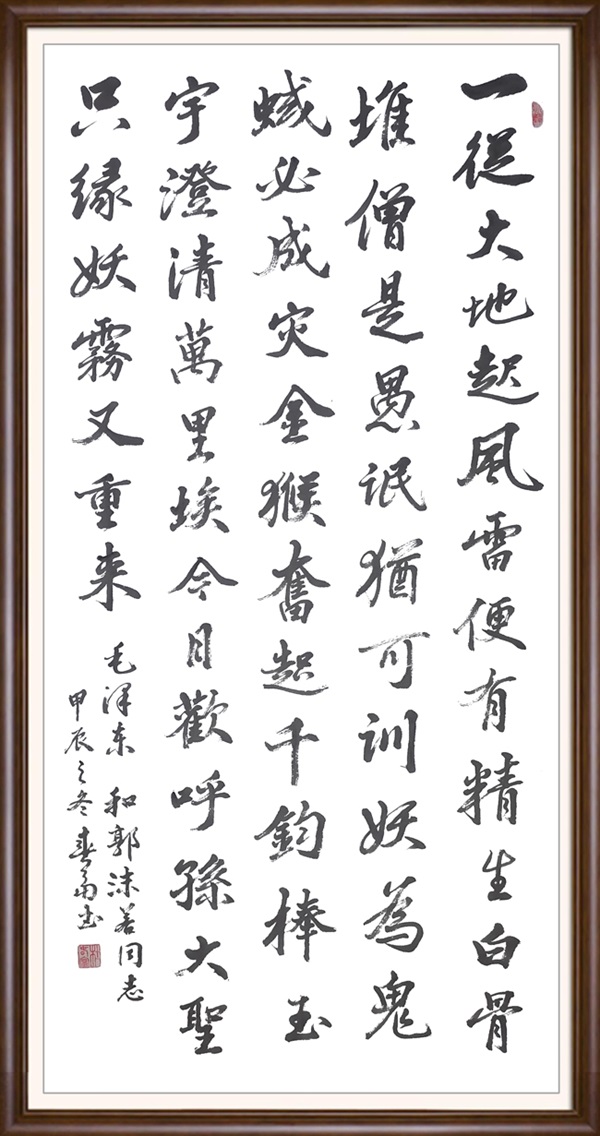 一從大地起風雷便有精生白骨
堆僧是愚氓猶可訓妖為鬼
蜮必成灾金猴奮起千鈞棒玉
宇澄清萬里埃今日歡呼孫大聖
只緣妖霧又重来
毛泽东 和郭沫若同志
甲辰之冬春书